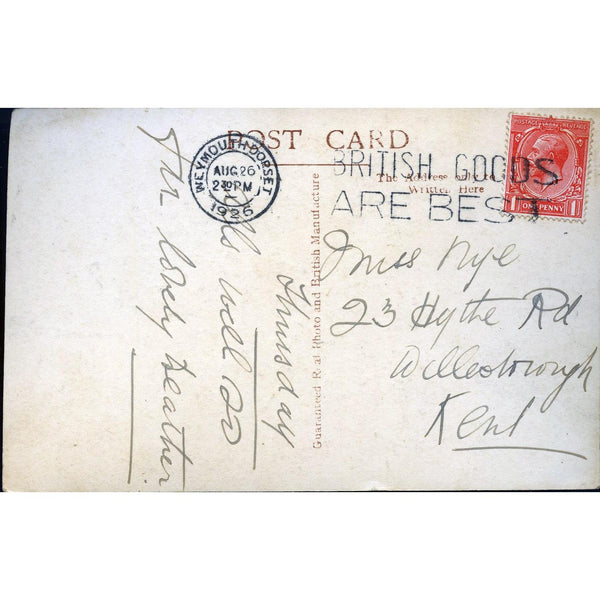 POST CARD
WEYMOUTH·DORSET
AUG 26
2 30 PM
1926
BRITISH GOODS
ARE BEST
The Address only to be
Written Here
POSTAGE REVENUE
1 ONE PENNY 1
Miss Nye
23 Hythe Rd
Willesborough
Kent
Guaranteed Real Photo and British Manufacture
Thursday
All's well so
far lovely weather